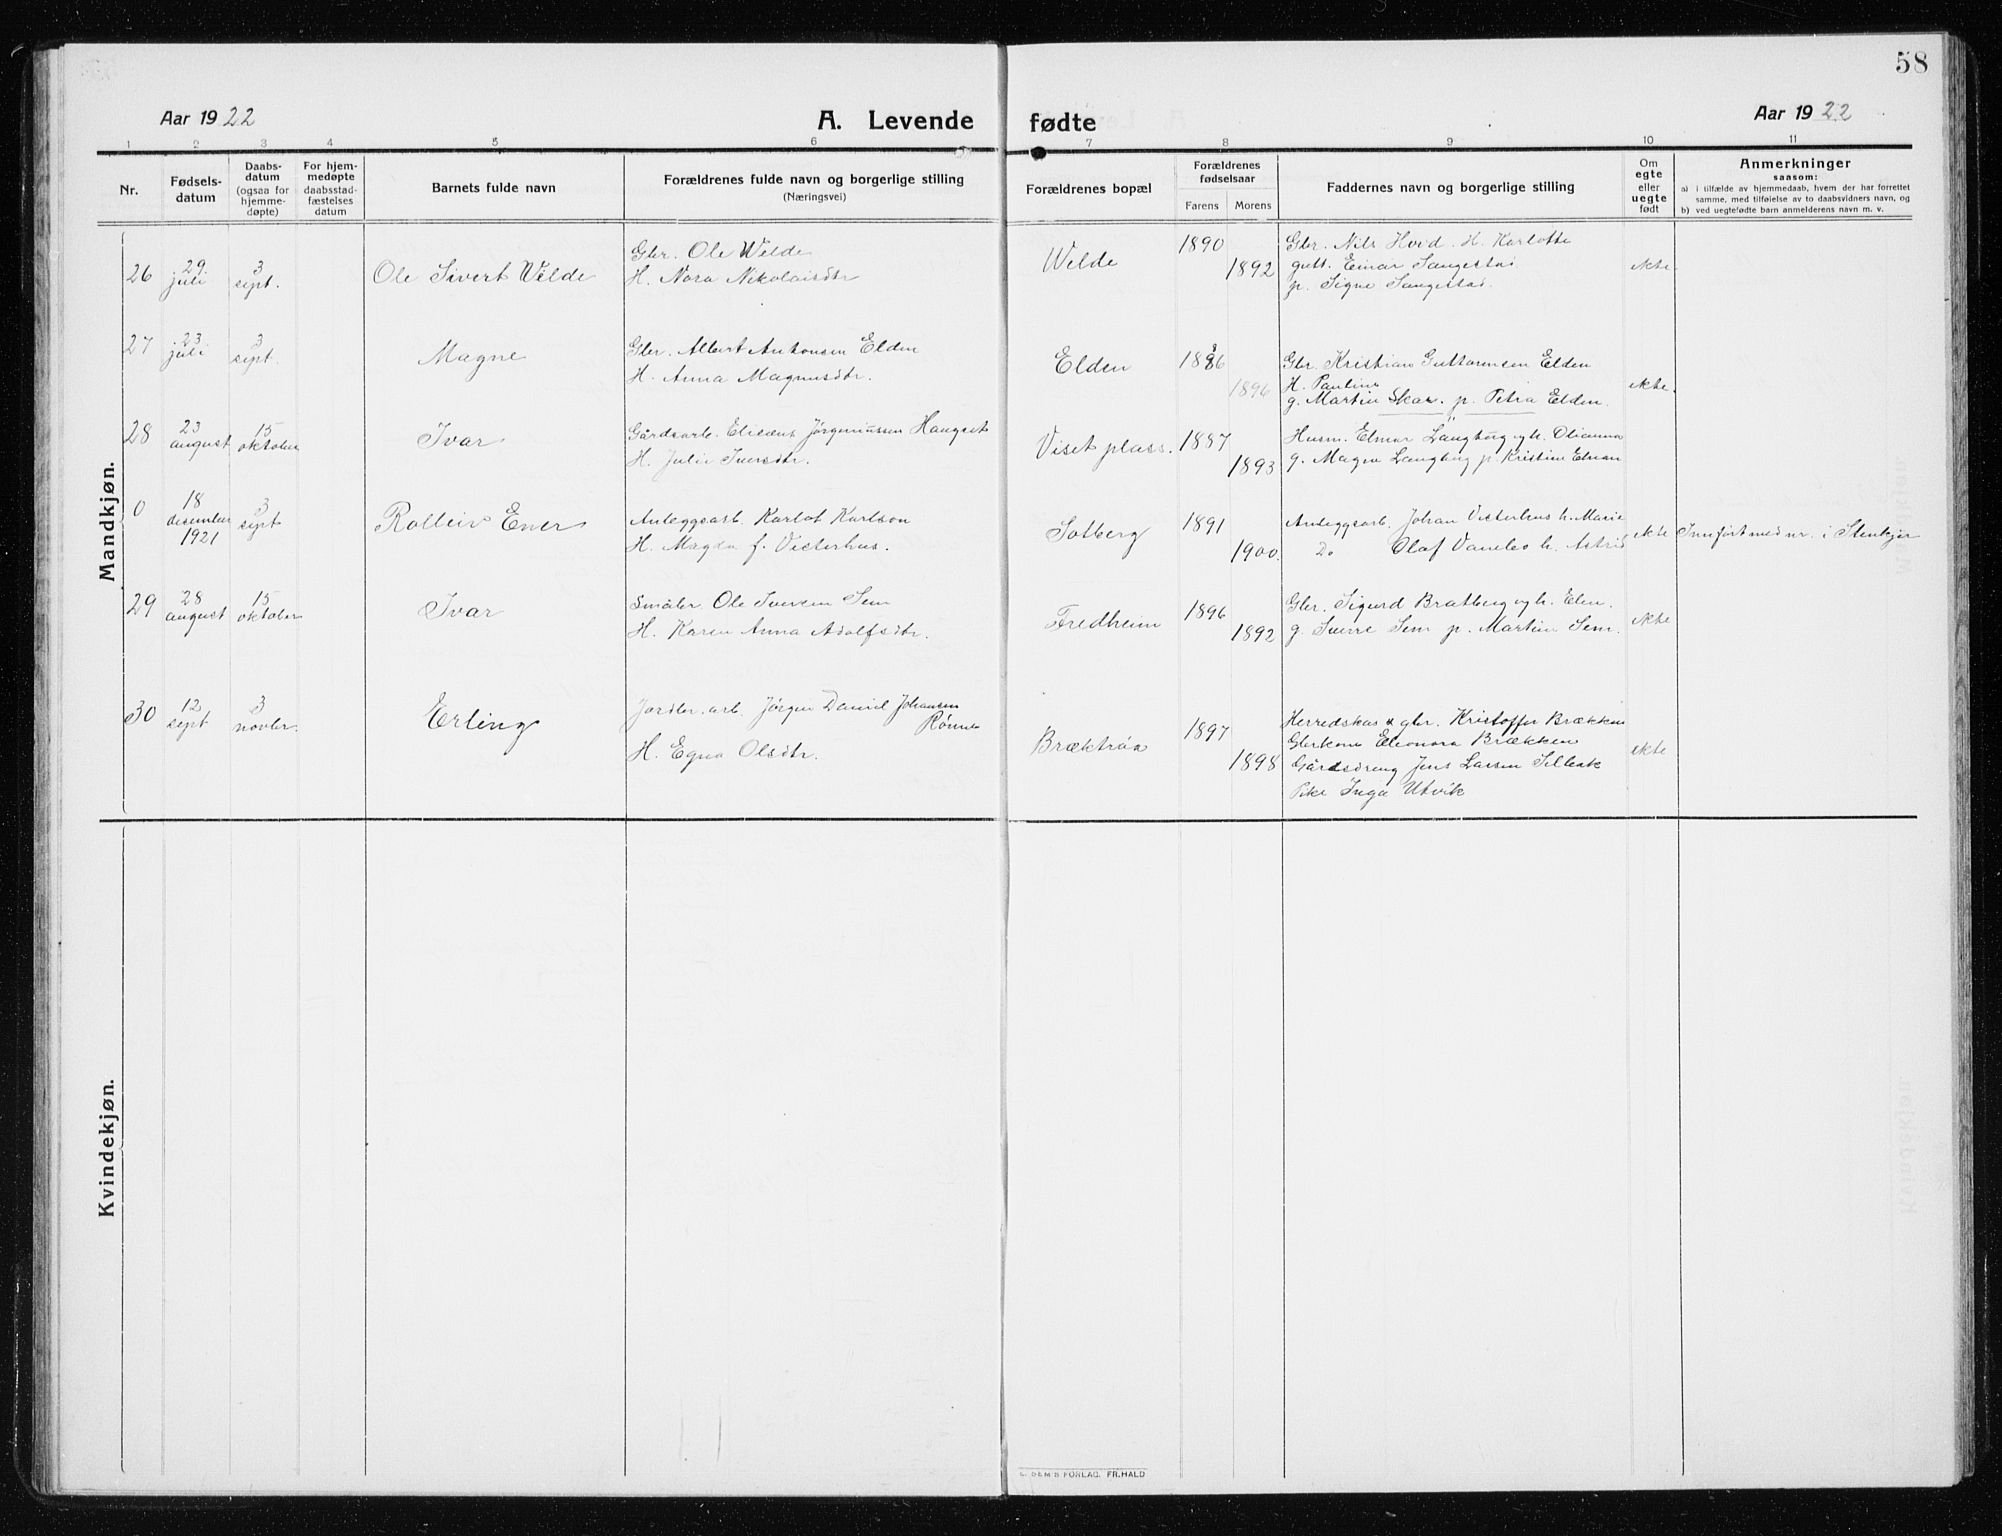 58
Aar 1922
A. Levende fødte
Aar 1922
1 2 3 4 5 6 7 8 9 10 11
Nr.
Fødsels-
datum
Daabs-
datum
(ogsaa for
hjemme-
døpte)
For hjem-
medøpte
daabsstad-
fæstelses
datum
Barnets fulde navn
Forældrenes fulde navn og borgerlige stilling
(Næringsvei)
Forældrenes bopæl
Forældrenes
fødselsaar
Farens Morens
Faddernes navn og borgerlige stilling
Om
egte
eller
uegte
født
Anmerkninger
saasom:
a) i tilfælde av hjemmedaab, hvem der har forrettet
samme, med tilføielse av to daabsvidners navn, og
b) ved uegtefødte barn anmelderens navn m. v.
Mandkjøn.
26
29
juli
3
sept.
Ole Sivert Welde
Gbr. Ole Welde
H. Nora Nikolaisdtr
Welde
1890
1892
Gbr. Nils Hovd. H. Karlotte
gutt. Einar Sangestad
p. Signe Sangestad.
ekte
27
23
juli
3
sept.
Magne
Gbr. Albert Antonsen Elden
H. Anna Magnusdtr.
Elden
1886
1896
Gbr. Kristian Guttormsen Elden
H. Pauline
g. Martin Skar. p. Petra Elden.
ekte.
28
23
august
15
oktober
Ivar
Gårdsarb. Eliseus Jørginussen Haugset
H. Julie Iversdtr.
Viset plass.
1887
1893
Husm. Elmar Langbug og h. Olianna
g. Magne Langbug p. Kristine Elnan
0
18
desember
1921
3
sept
Rolleiv Ener
Anleggsarb. Karlot Karlson
H. Magda f. Vesterhus.
Solberg
1891
1900.
Anleggsarb. Johan Vesterhus h. Marie
Do Olaf Vanebo h. Astrid
ekte
Innført med nr. i Stenkjer
29
28
august
15
oktober
Ivar
Småbr. Ole Iversen Sem
H. Karen Anna Adolfsdtr.
Fredheim
1896
1892
Gbr. Sigurd Bratberg og h. Elen.
g. Sverre Sem p. Martine Sem.
ekte
30
12
sept
3
novbr.
Erling
Jordbr. arb. Jørgen Daniel Johansen
Rønne
H. Egna Olsdtr.
Bræktrøa
1897
1898
Herredskas & gbr. Kristoffer Brækken
Gbrkone Eleonora Brækken
Gårdsdreng Jens Larsen
Pike Inga Utvik
ekte
Kvindekjøn.
E. SEM'S FORLAG. FR.HALD